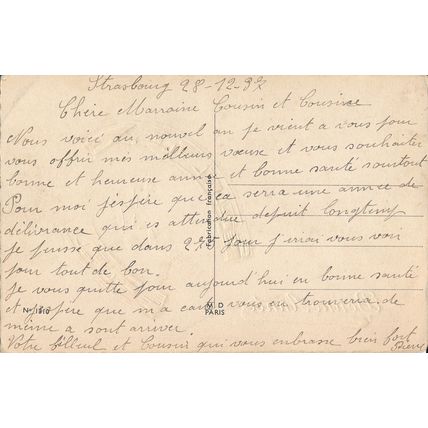 Strasbourg 28-12-37
Chère Marraine Cousin et Cousine
Nous voici au nouvel an je vient a vous pour
vous offrir mes meilleurs voeuse et vous souhaiter
bonne et heureuse année et bonne santé soustout
Pour moi j'espère que ca serra une année de
délivrance qui es attendue depuit longtemp
je pense que dans 27 jour j'irrai vous voir
pour tout de bon.
je vous quitte pour aujourd'hui en bonne santé
et j'espère que m'a carte vous en trouverra de
même a sont arriver.
Votre filleul et Cousin qui vous enbrasse bien fort
Pierre
Fabrication française
N° 1310
M D
PARIS